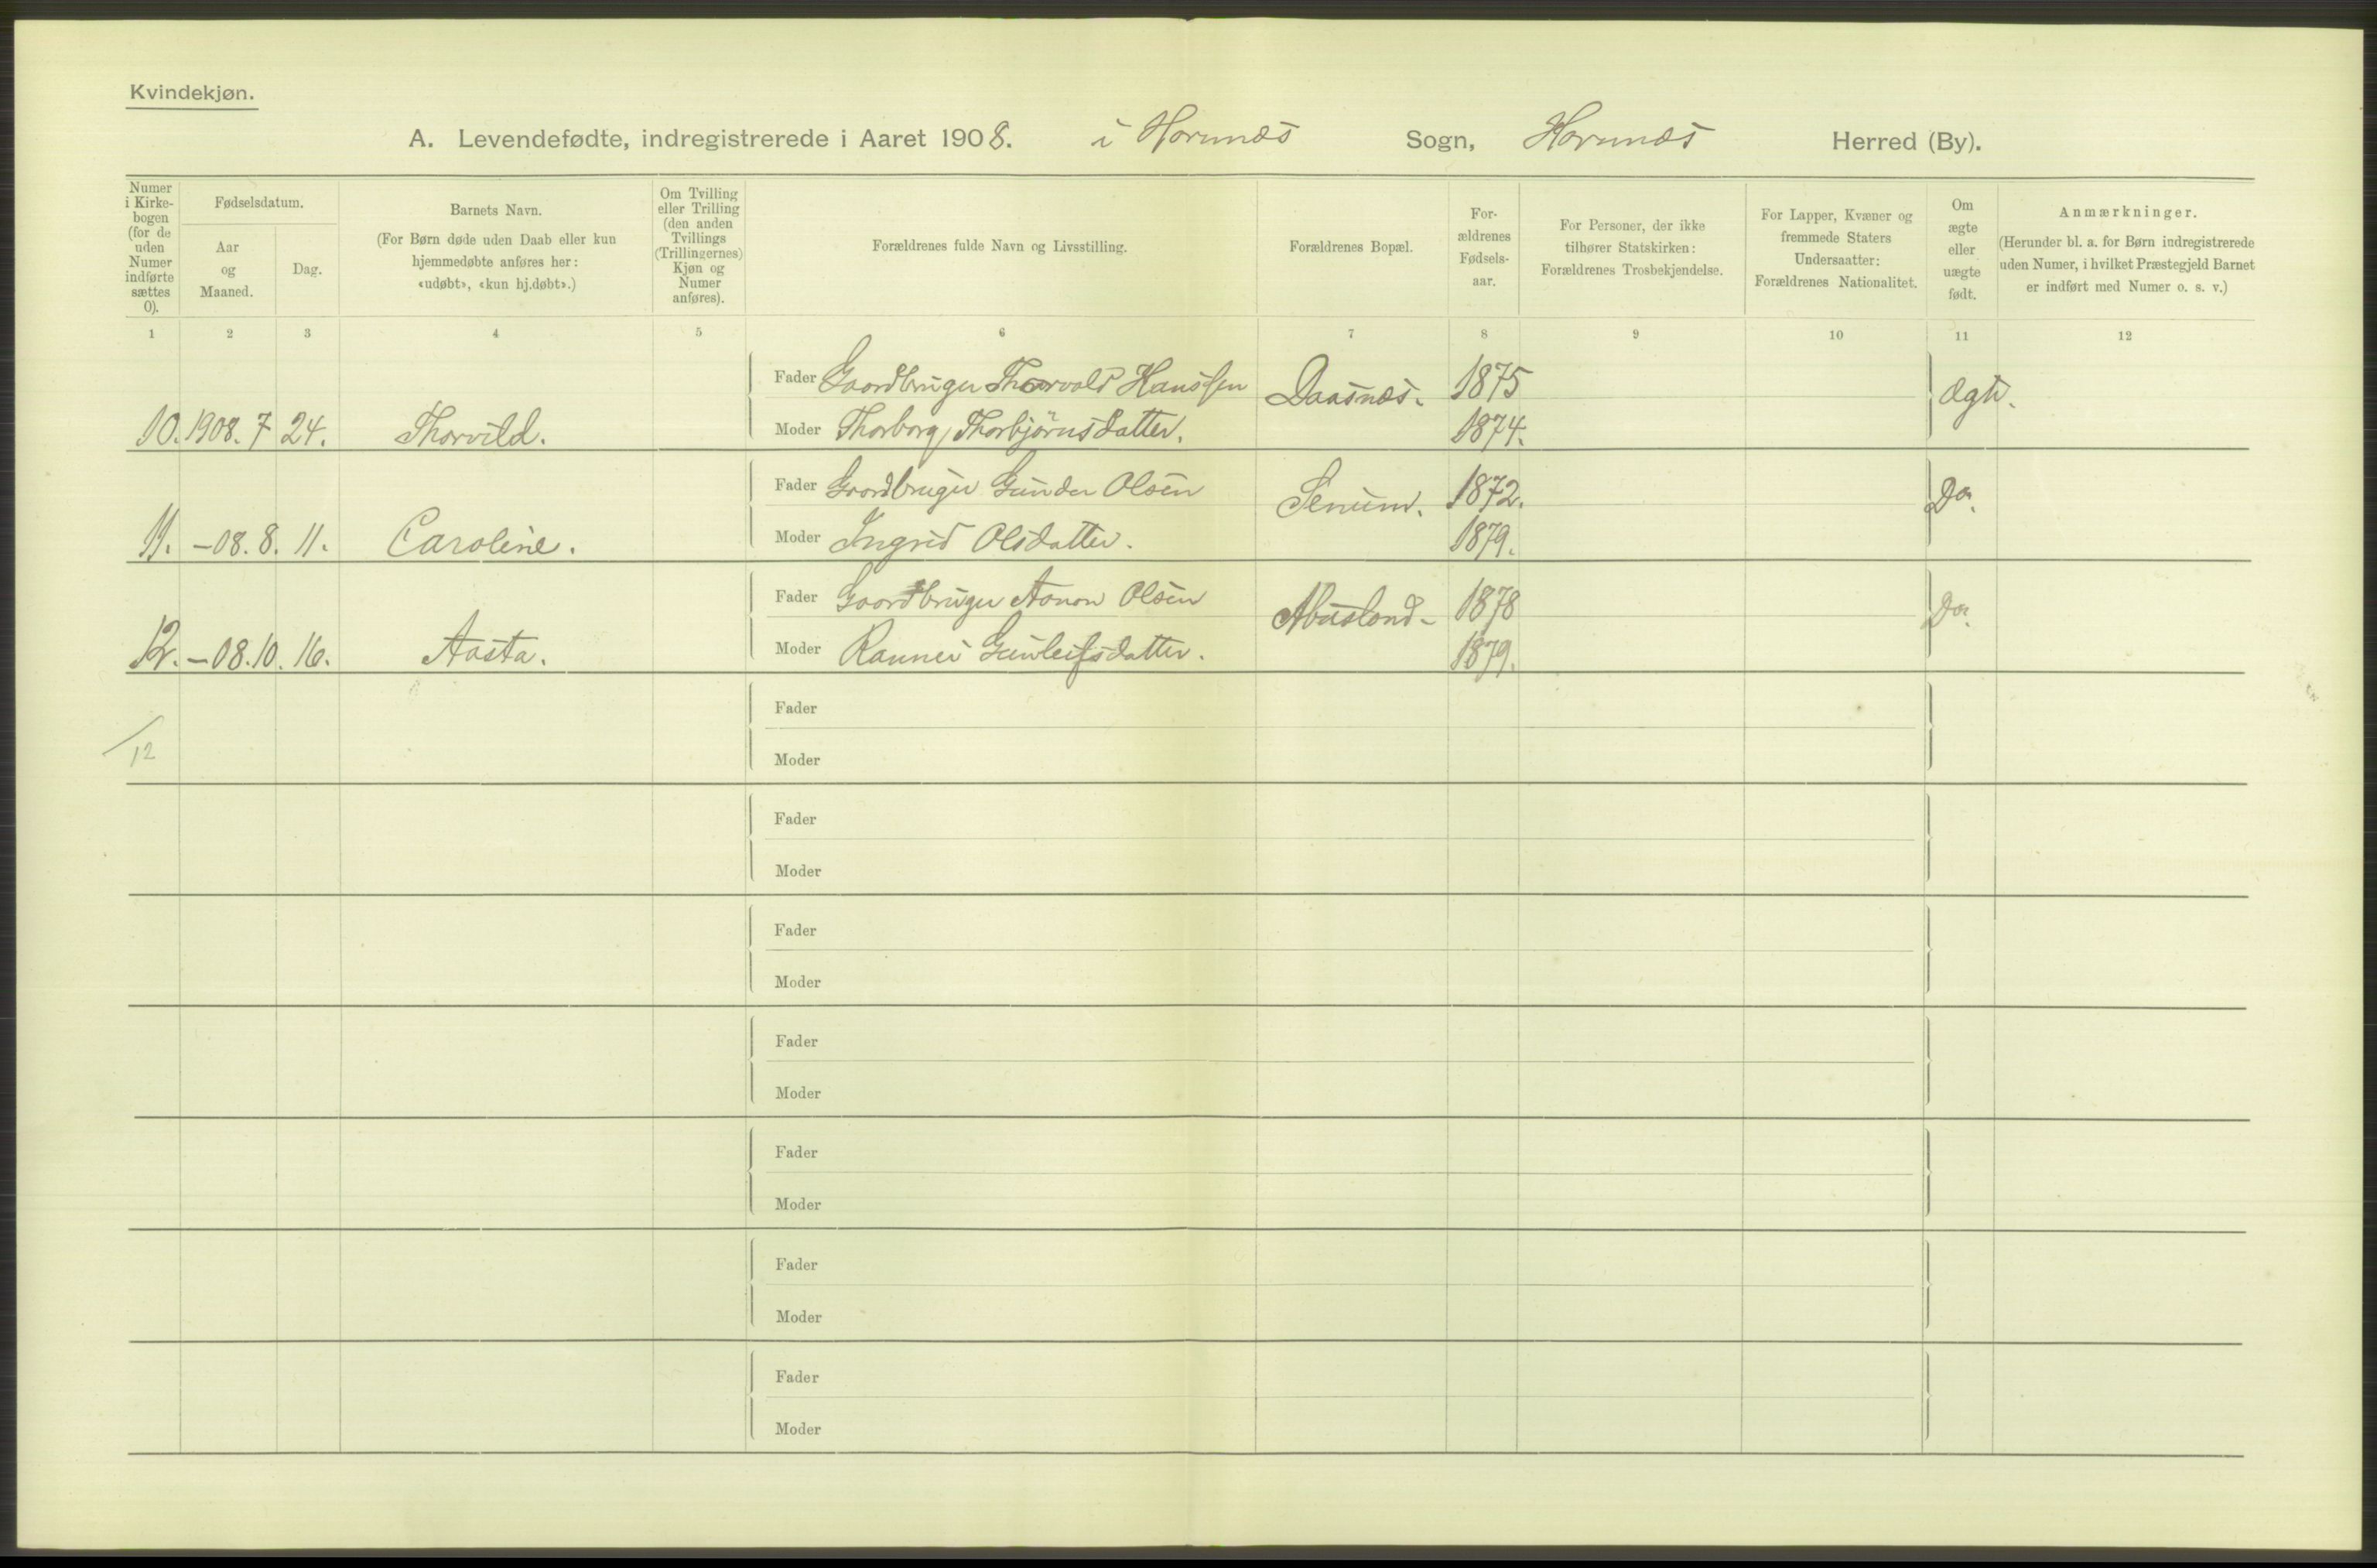 Kvindekjøn.
A. Levendefødte, indregistrerede i Aaret 1908. i Hornnæs Sogn, Hornnæs Herred (By).
Numer i Kirkebogen (for de uden Numer indførte sættes 0).
Fødselsdatum.
Aar og Maaned.
Dag.
Barnets Navn.
(For Børn døde uden Daab eller kun
hjemmedøbte anføres her:
«udøbt», «kun hj.døbt».)
Om Tvilling
eller Trilling
(den anden
Tvillings
(Trillingernes)
Kjøn og
Numer
anføres).
Forældrenes fulde Navn og Livsstilling.
Forældrenes Bopæl.
For-
ældrenes
Fødsels-
aar.
For Personer, der ikke
tilhører Statskirken:
Forældrenes Trosbekjendelse.
For Lapper, Kvæner og
fremmede Staters
Undersaatter:
Forældrenes Nationalitet.
Om
ægte
eller
uægte
født.
Anmærkninger.
(Herunder bl. a. for Børn indregistrerede
uden Numer, i hvilket Præstegjeld Barnet
er indført med Numer o. s. v.)
1 2 3 4 5 6 7 8 9 10 11 12
Fader Gaardbruger Thorvald Hanssen Daasnæs. 1875 Ægte.
10. 1908. 7 24. Thorvild. Moder Thorborg Thorbjørnsdatter. 1874.
Fader Gaardbruger Gunder Olsen Senum. 1872. Do.
11. -08. 8. 11. Caroline. Moder Ingrid Olsdatter. 1879.
Fader Gaardbruger Aanon Olsen Abusland- 1878 Do.
12. -08. 10. 16. Aasta. Moder Rannei Gunleifsdatter. 1879.
Fader
/12
Moder
Fader
Moder
Fader
Moder
Fader
Moder
Fader
Moder
Fader
Moder
Fader
Moder